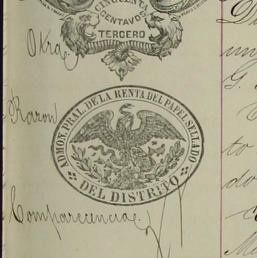 CINCUENTA
CENTAVOS
TERCERO
Otra
Razon
ADMON. PRAL. DE LA RENTA DEL PAPEL SELLADO
DEL DISTRITO
Comparecencia
G.
to
do